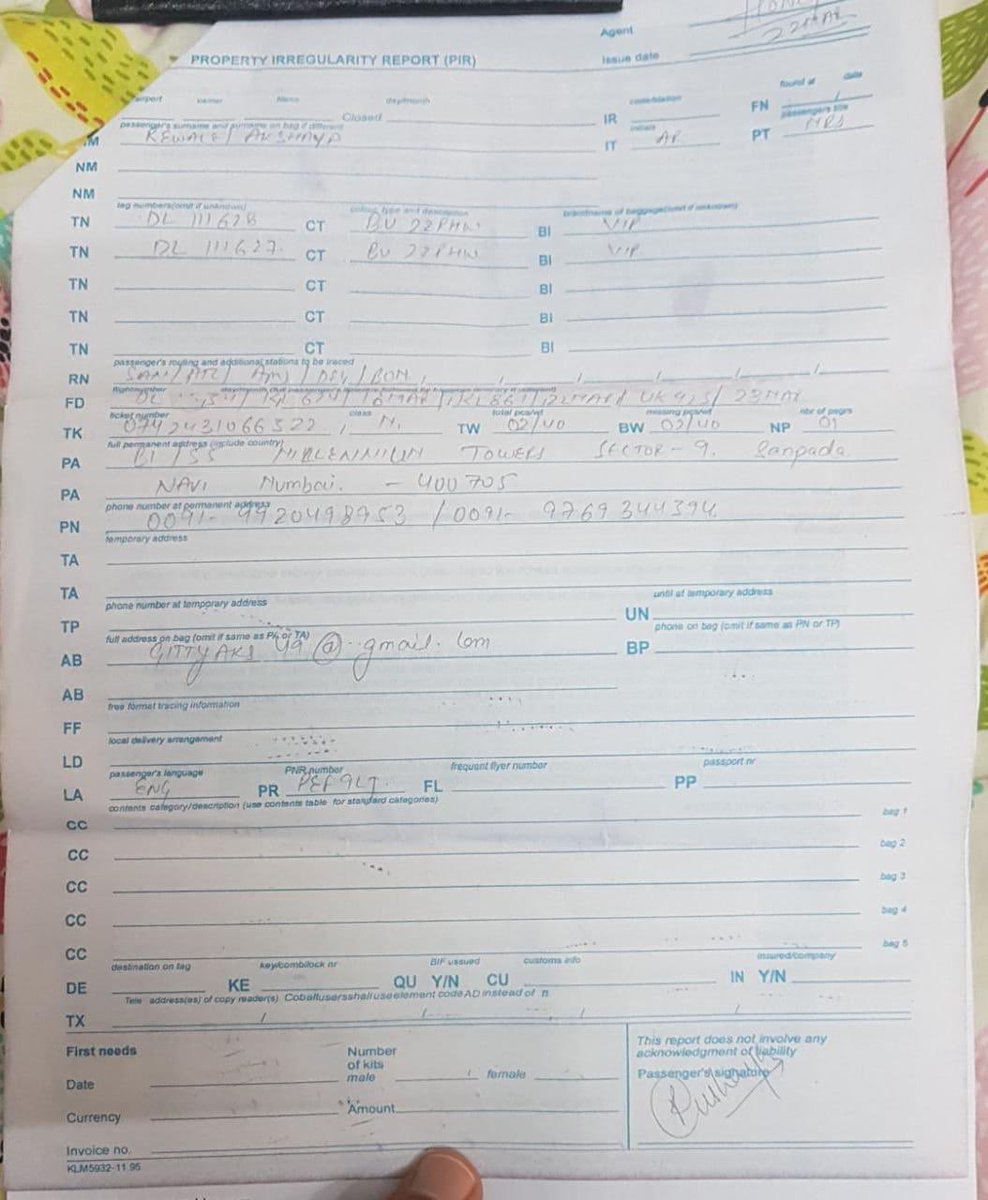 Agent
22MAR
Issue date
PROPERTY IRREGULARITY REPORT (PIR)
found at date
airport carrier Name day/month
Closed IR FN /
passenger's surname and surname on bag if different initials passenger's title
KEWALE / AKSHAYA IT AP PT MRS
NM
NM
tag numbers(omit if unknown) colour, type and description brandname of baggage(omit if unknown)
TN DL 111628 CT BU 22PHW BI VIP
TN DL 111627 CT BU 22PHW BI VIP
TN CT BI
TN CT BI
TN CT BI
passenger's routing and additional stations to be traced
RN / AMS / DEL / BOM / / / / /
FD
ticket number class total pcs/wt missing pcs/wt nbr of psgrs
TK 0742431066322 , N. TW 02/40 BW 02/40 NP 01
full permanent address (include country)
PA TOWERS SECTOR - 9. Sanpada
PA NAVI Mumbai. - 400705
phone number at permanent address
PN 0091- 9920498953 / 0091- 9769344394
temporary address
TA
TA
phone number at temporary address until at temporary address
TP UN
full address on bag (omit if same as PA or TA) phone on bag (omit if same as PN or TP)
AB @gmail.com BP
AB
free format tracing information
FF
local delivery arrangement
LD
passenger's language PNR number frequent flyer number passport nr
LA ENG PR FL PP
contents category/description (use contents table for standard categories)
CC bag 1
CC bag 2
CC bag 3
CC bag 4
CC bag 5
destination on tag key/combilock nr BIF ussued customs info insured/company
DE KE QU Y/N CU IN Y/N
Tele address(es) of copy reader(s). Cobaltusersshalluseelement codeAD instead of n.
TX / / / /
First needs Number of kits
Date male / female
Currency Amount
Invoice no.
This report does not involve any
acknowledgment of liability
Passenger's\signature
KLM5932-11 95